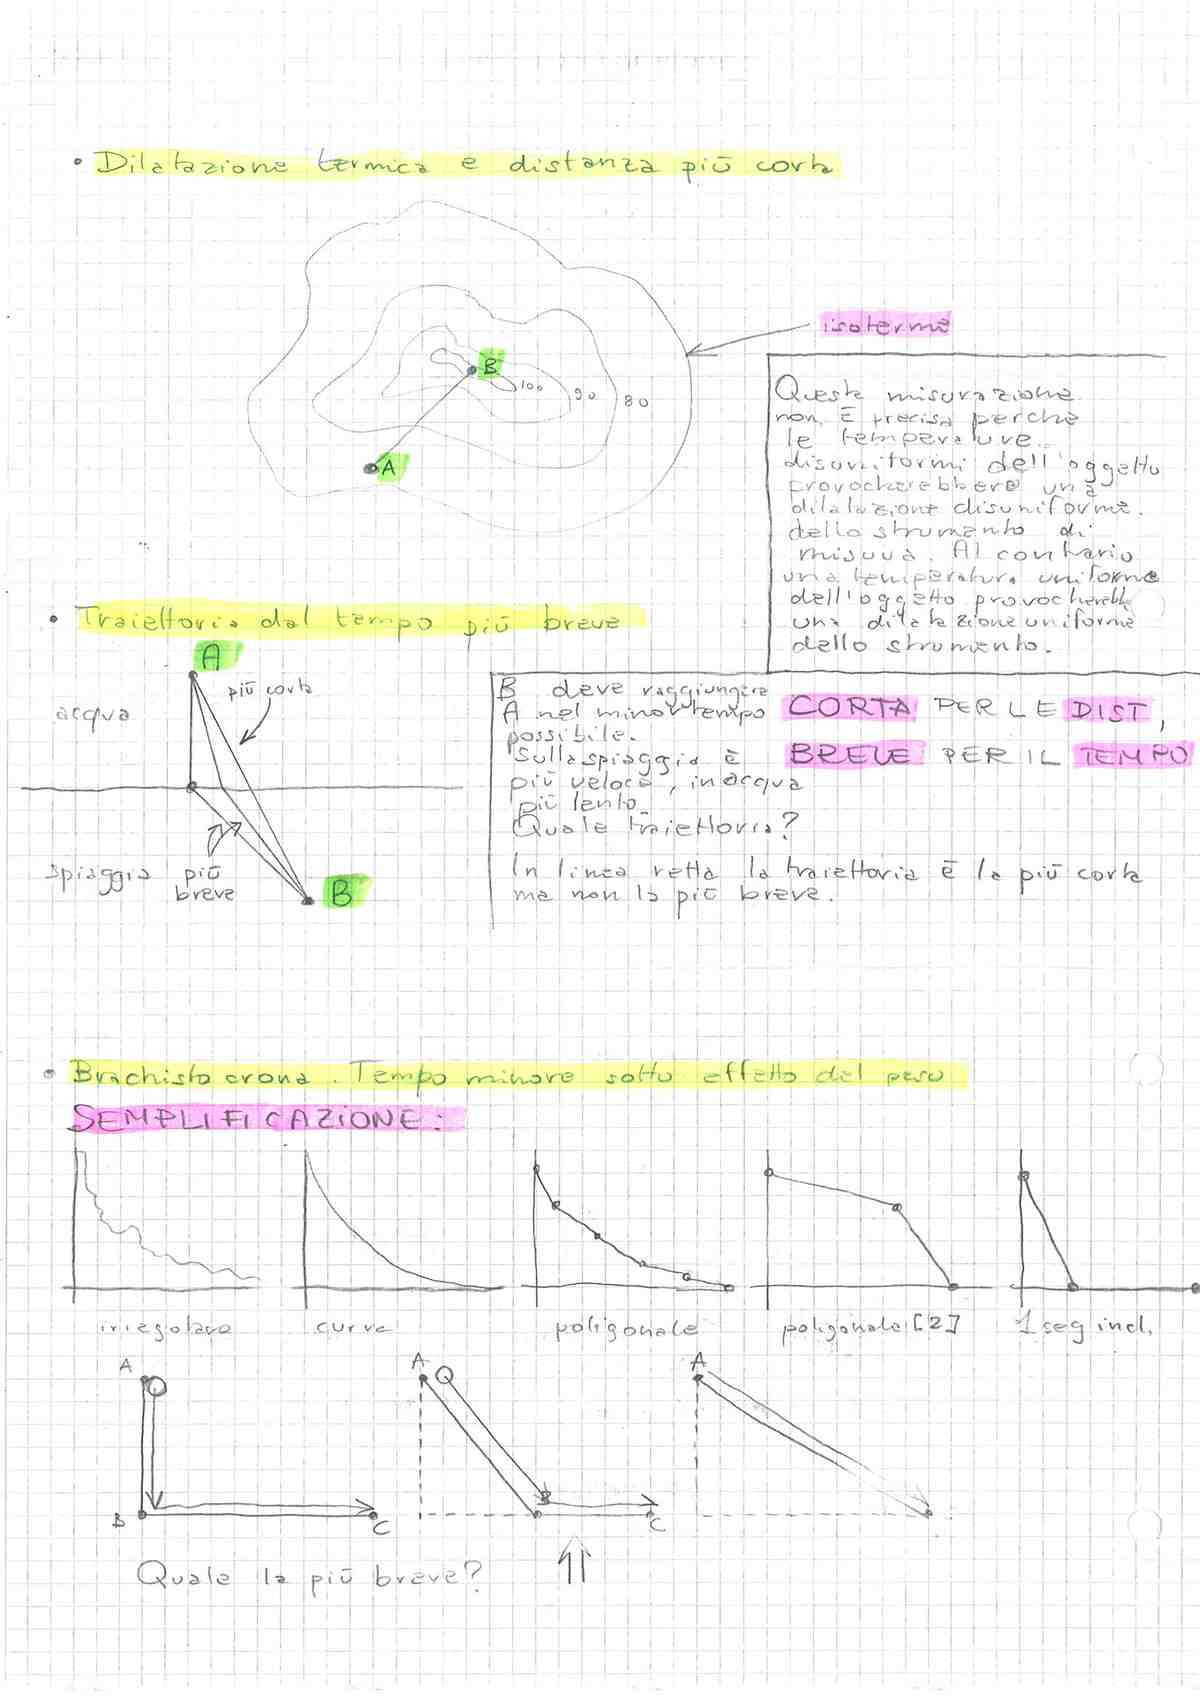 • Dilatazione termica e distanza più corta
isoterme
B
100
90
80
A
Questa misurazione
non è precisa perché
le temperature
disuniformi dell'oggetto
provocherebbero una
dilatazione disuniforme
dello strumento di
misura. Al contrario
una temperatura uniforme
dell'oggetto provocherebb
una dilatazione uniforme
dello strumento.
• Traiettoria dal tempo più breve
A
più corta
acqua
spiaggia
più
breve
B
B deve raggiungere
A nel minor tempo
possibile.
Sulla spiaggia è
più veloce, in acqua
più lento
Quale traiettoria?
In linea retta la traiettoria è la più corta
ma non la più breve.
CORTA PER LE DIST,
BREVE PER IL TEMPO
• Brachistocrona. Tempo minore sotto effetto del peso
SEMPLIFICAZIONE:
irregolare
curva
poligonale
poligonale [2]
1 seg incl.
A
B
C
A
B
C
A
Quale la più breve?